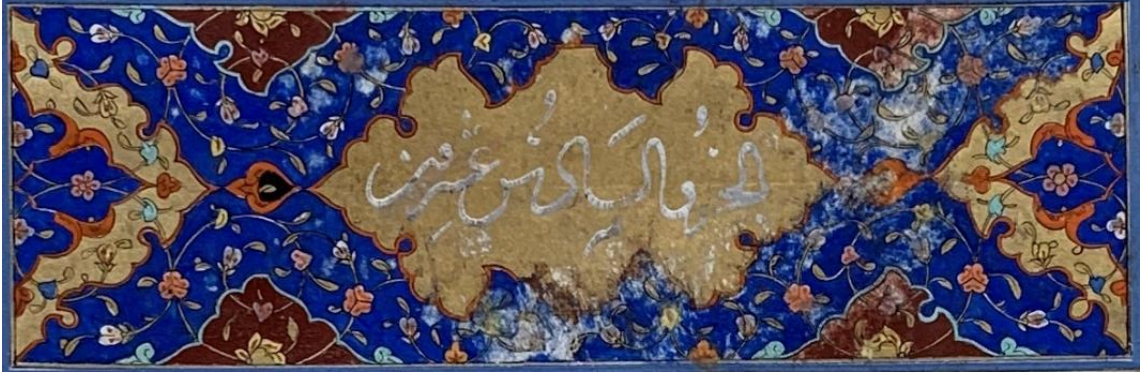 الجزءُ السادسُ عشر من